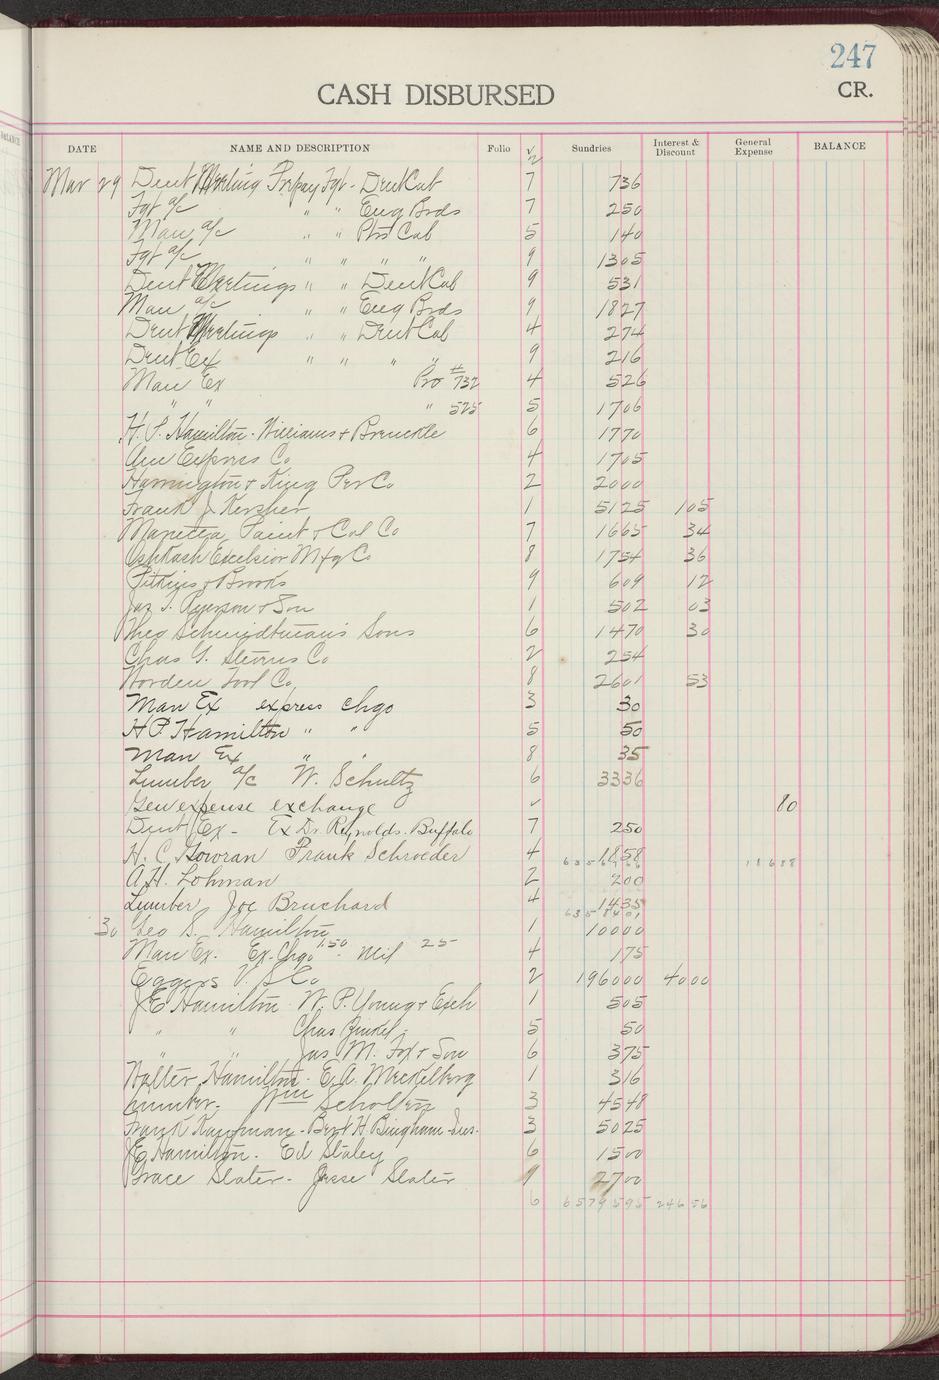 247
CASH DISBURSED CR.
BALANCE
DATE NAME AND DESCRIPTION Folio √ Sundries Interest & Discount General Expense BALANCE
2
Mar 29 Dent Meeting Prepay Fgt - Dent Cab 7 736
Fgt a/c " " Eug Brds 7 250
Man a/c " " Phs Cab 5 140
Fgt a/c " " " " 9 1305
Dent Meetings " " Dent Cab 9 531
Man a/c " " Eug Brds 9 1827
Dent Meetings " " Dent Cab 4 274
Dent Ex " " " " 9 216
Man Ex Pro # 732 4 526
" " " 525 5 1706
H. P. Hamilton - Williams & Brenckle 6 1770
Am Express Co 4 1705
Harrington & King Per Co 2 2000
Frank J. Kersher 1 5125 105
Paint & Col Co 7 1665 34
Oshkosh Excelsior Mfg Co 8 1754 36
Pitkins & Brooks 9 609 12
Jos. T. Ryerson & Son 1 502 03
Theo Schmidtmans Sons 6 1470 30
Chas G. Stevens Co 2 254
Worden Tool Co, 8 2601 53
Man Ex express chgo 3 30
H P Hamilton " " 5 50
Man Ex " " 8 35
Lumber a/c W. Schultz 6 3336
Gen expense exchange √ 80
Dent Ex - Ex Dr. Reynolds. Buffalo 7 250
H. C. Gowran Frank Schroeder 4 1858
18688
A.H. Lohman 2 200
Lumber, Joe Bruchard 4 1435
30 Geo S. Hamilton 1 10000
Man Ex. Ex. Chgo 1.50 - Mil 25 4 175
Eggers V. S Co 2 196000 4000
J E Hamilton - W. P. Young & Exch 1 505
" " Chas 5 50
" " Jas M. Fox & Son 6 375
Walter Hamilton - E. A. Meckelberg 1 316
Lumber - Wm Scholten 3 4548
Frank Kaufman - Bert H. Bingham - Ins. 3 5025
J E Hamilton - Ed Staley 6 1500
Grace Slater - Jesse Slater 9 2700
6 6579595 24656